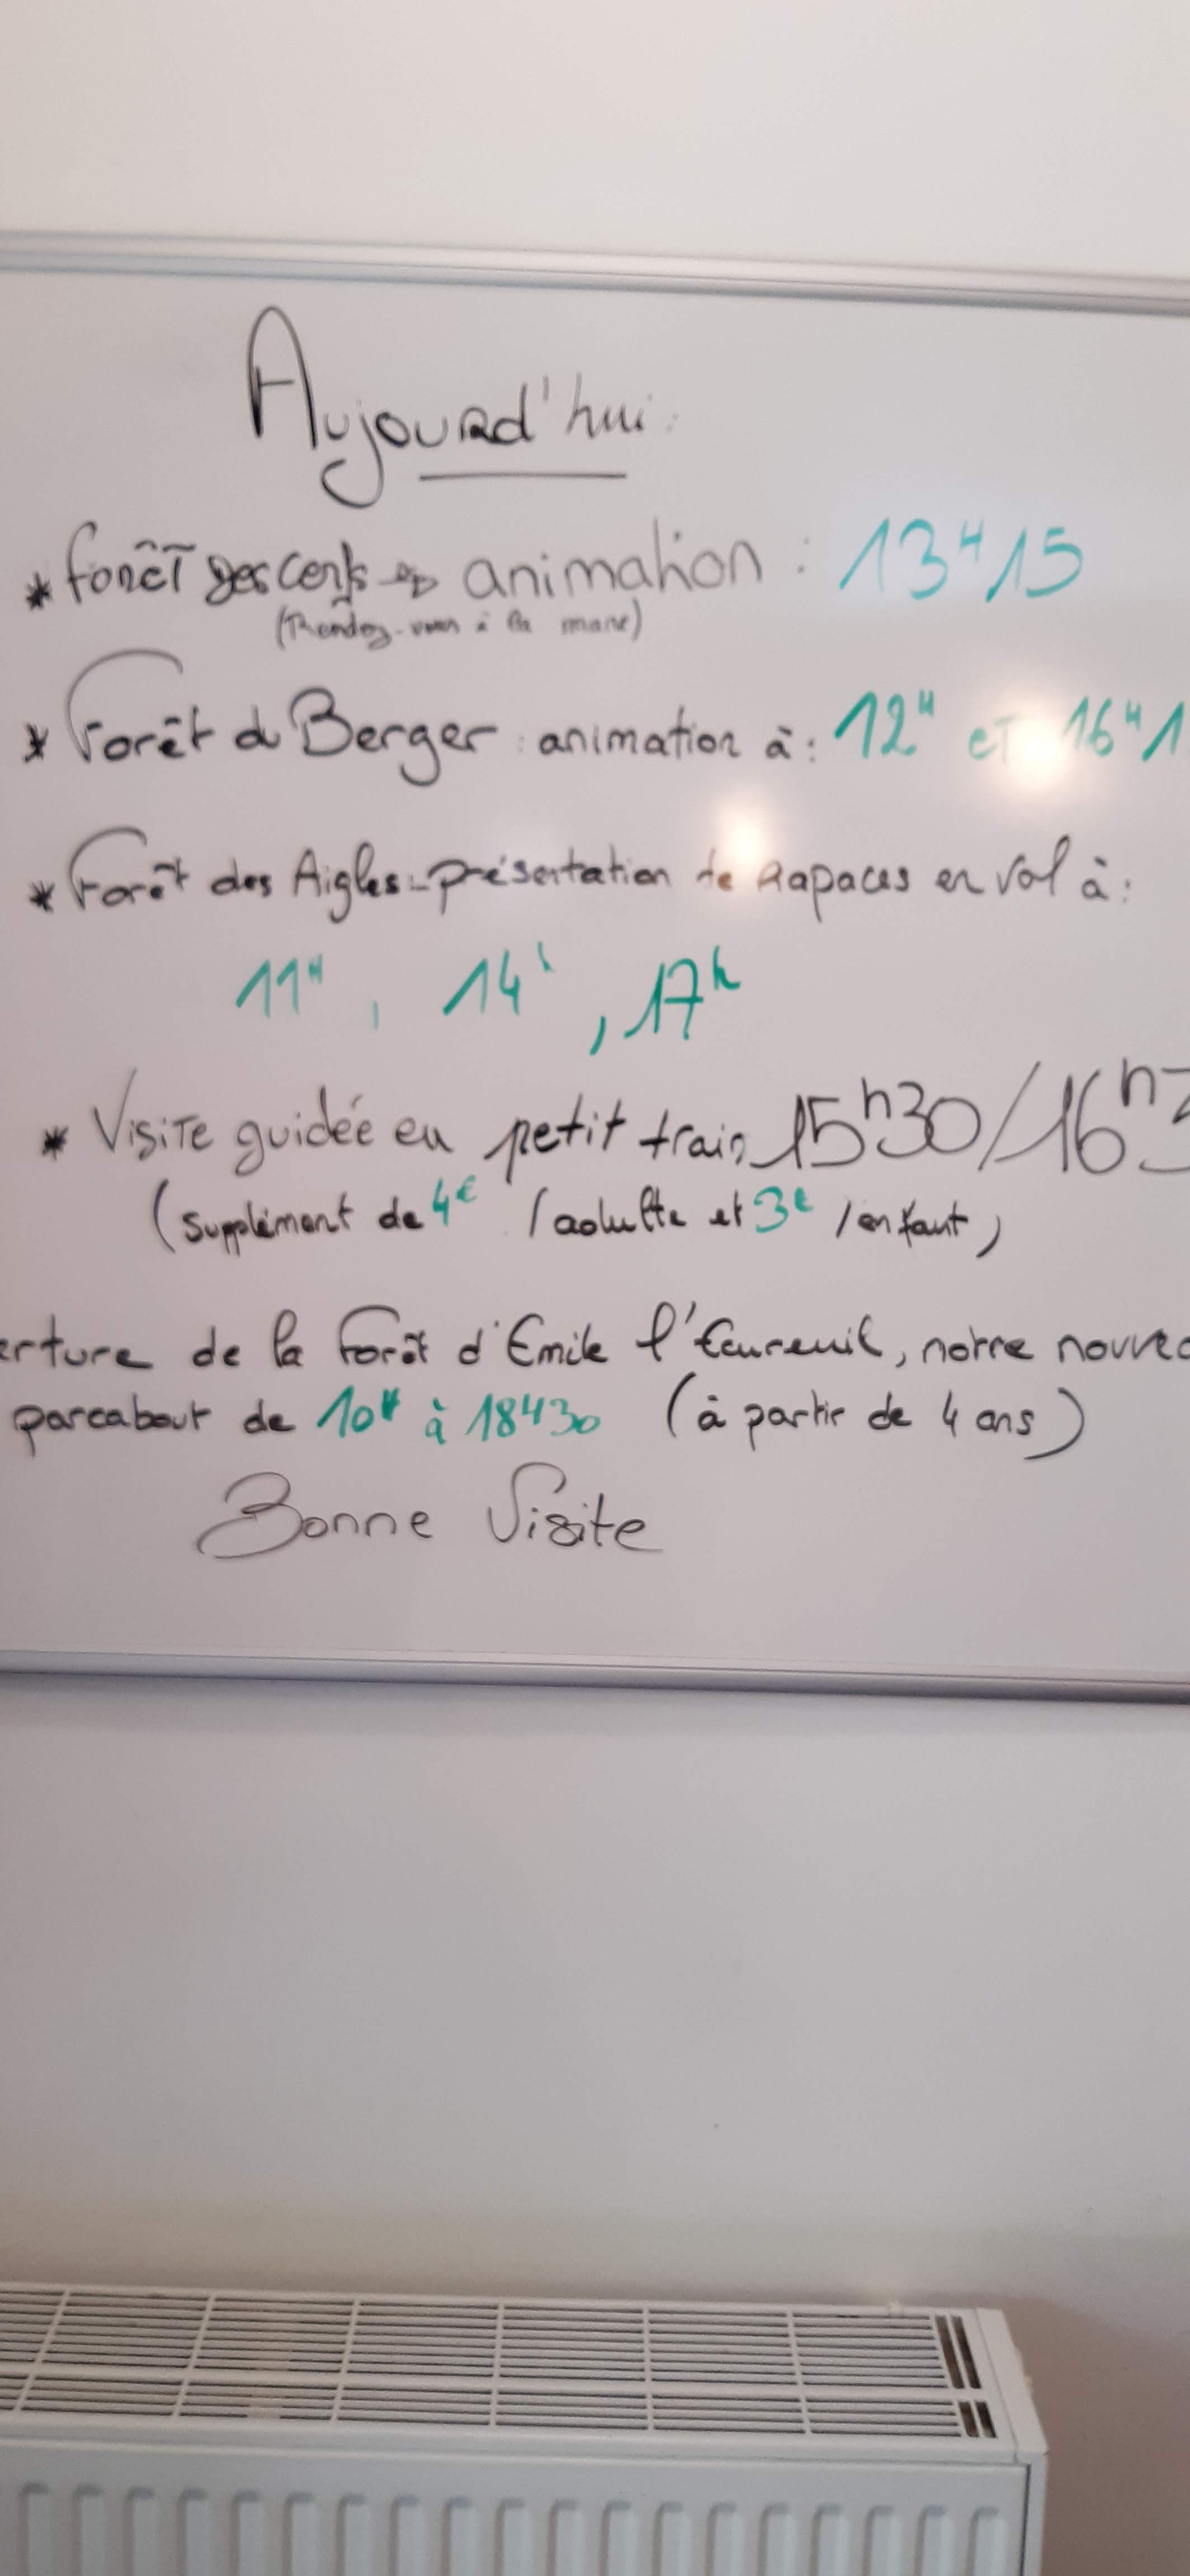 Aujourd'hui:
* forêt des cerfs → animation : 13H15
(Rendez-vous à la mare)
* Forêt du Berger : animation à : 12H et 16H1
* Forêt des Aigles - présentation de Rapaces en vol à :
11H, 14h, 17h
* Visite guidée en petit train 15h30/16h3
(supplément de 4€ /adulte et 3€ /enfant)
erture de la Forêt d'Emile l'Ecureuil, notre nouvea
parcabout de 10H à 18H30 (à partir de 4 ans)
Bonne Visite